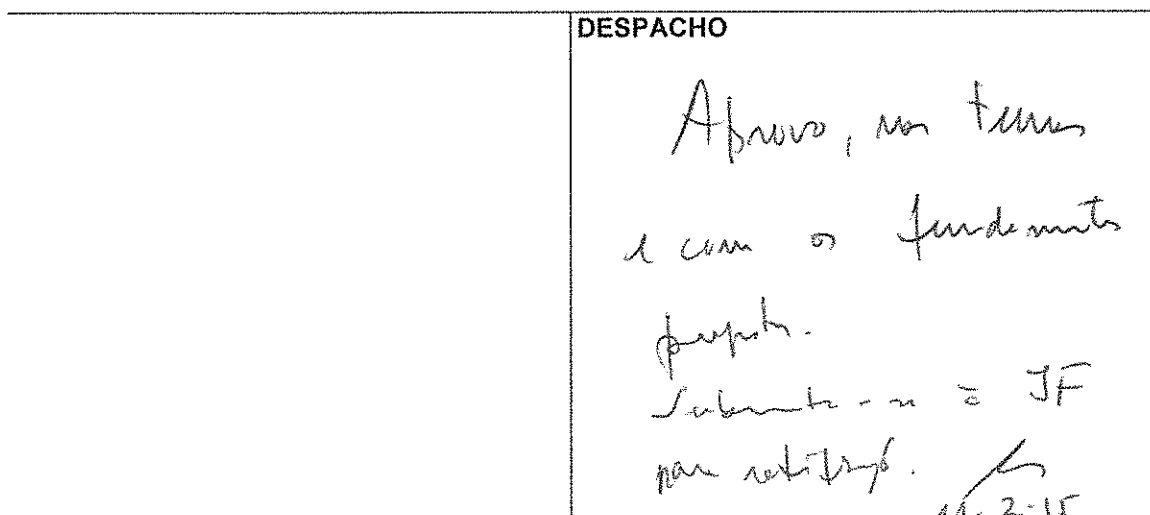 DESPACHO
Aprovo, nos termos
e com os fundamentos
propostos.
Submeta-se à JF
para ratificação.
11-2-15